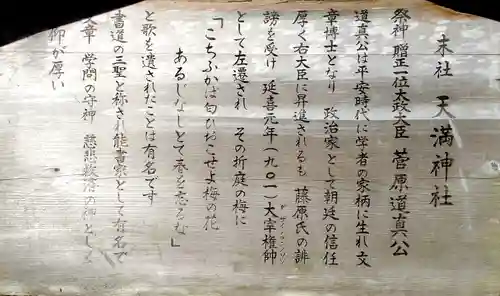 末社 天満神社
祭神 贈正一位太政大臣 菅原道真公
道真公は平安時代に学者の家柄に生れ文
章博士となり 政治家として朝廷の信任
厚く右大臣に昇進されるも 藤原氏の誹
謗を受け 延喜元年(九〇一)大宰権帥
として左遷され その折庭の梅に
「こちふかば匂ひおこせよ梅の花
あるじなしとて春を忘るな」
と歌を遺されたことは有名です
書道の三聖と称され能書家として有名で
文章 学問の守神 慈悲救済の神として
仰が厚い